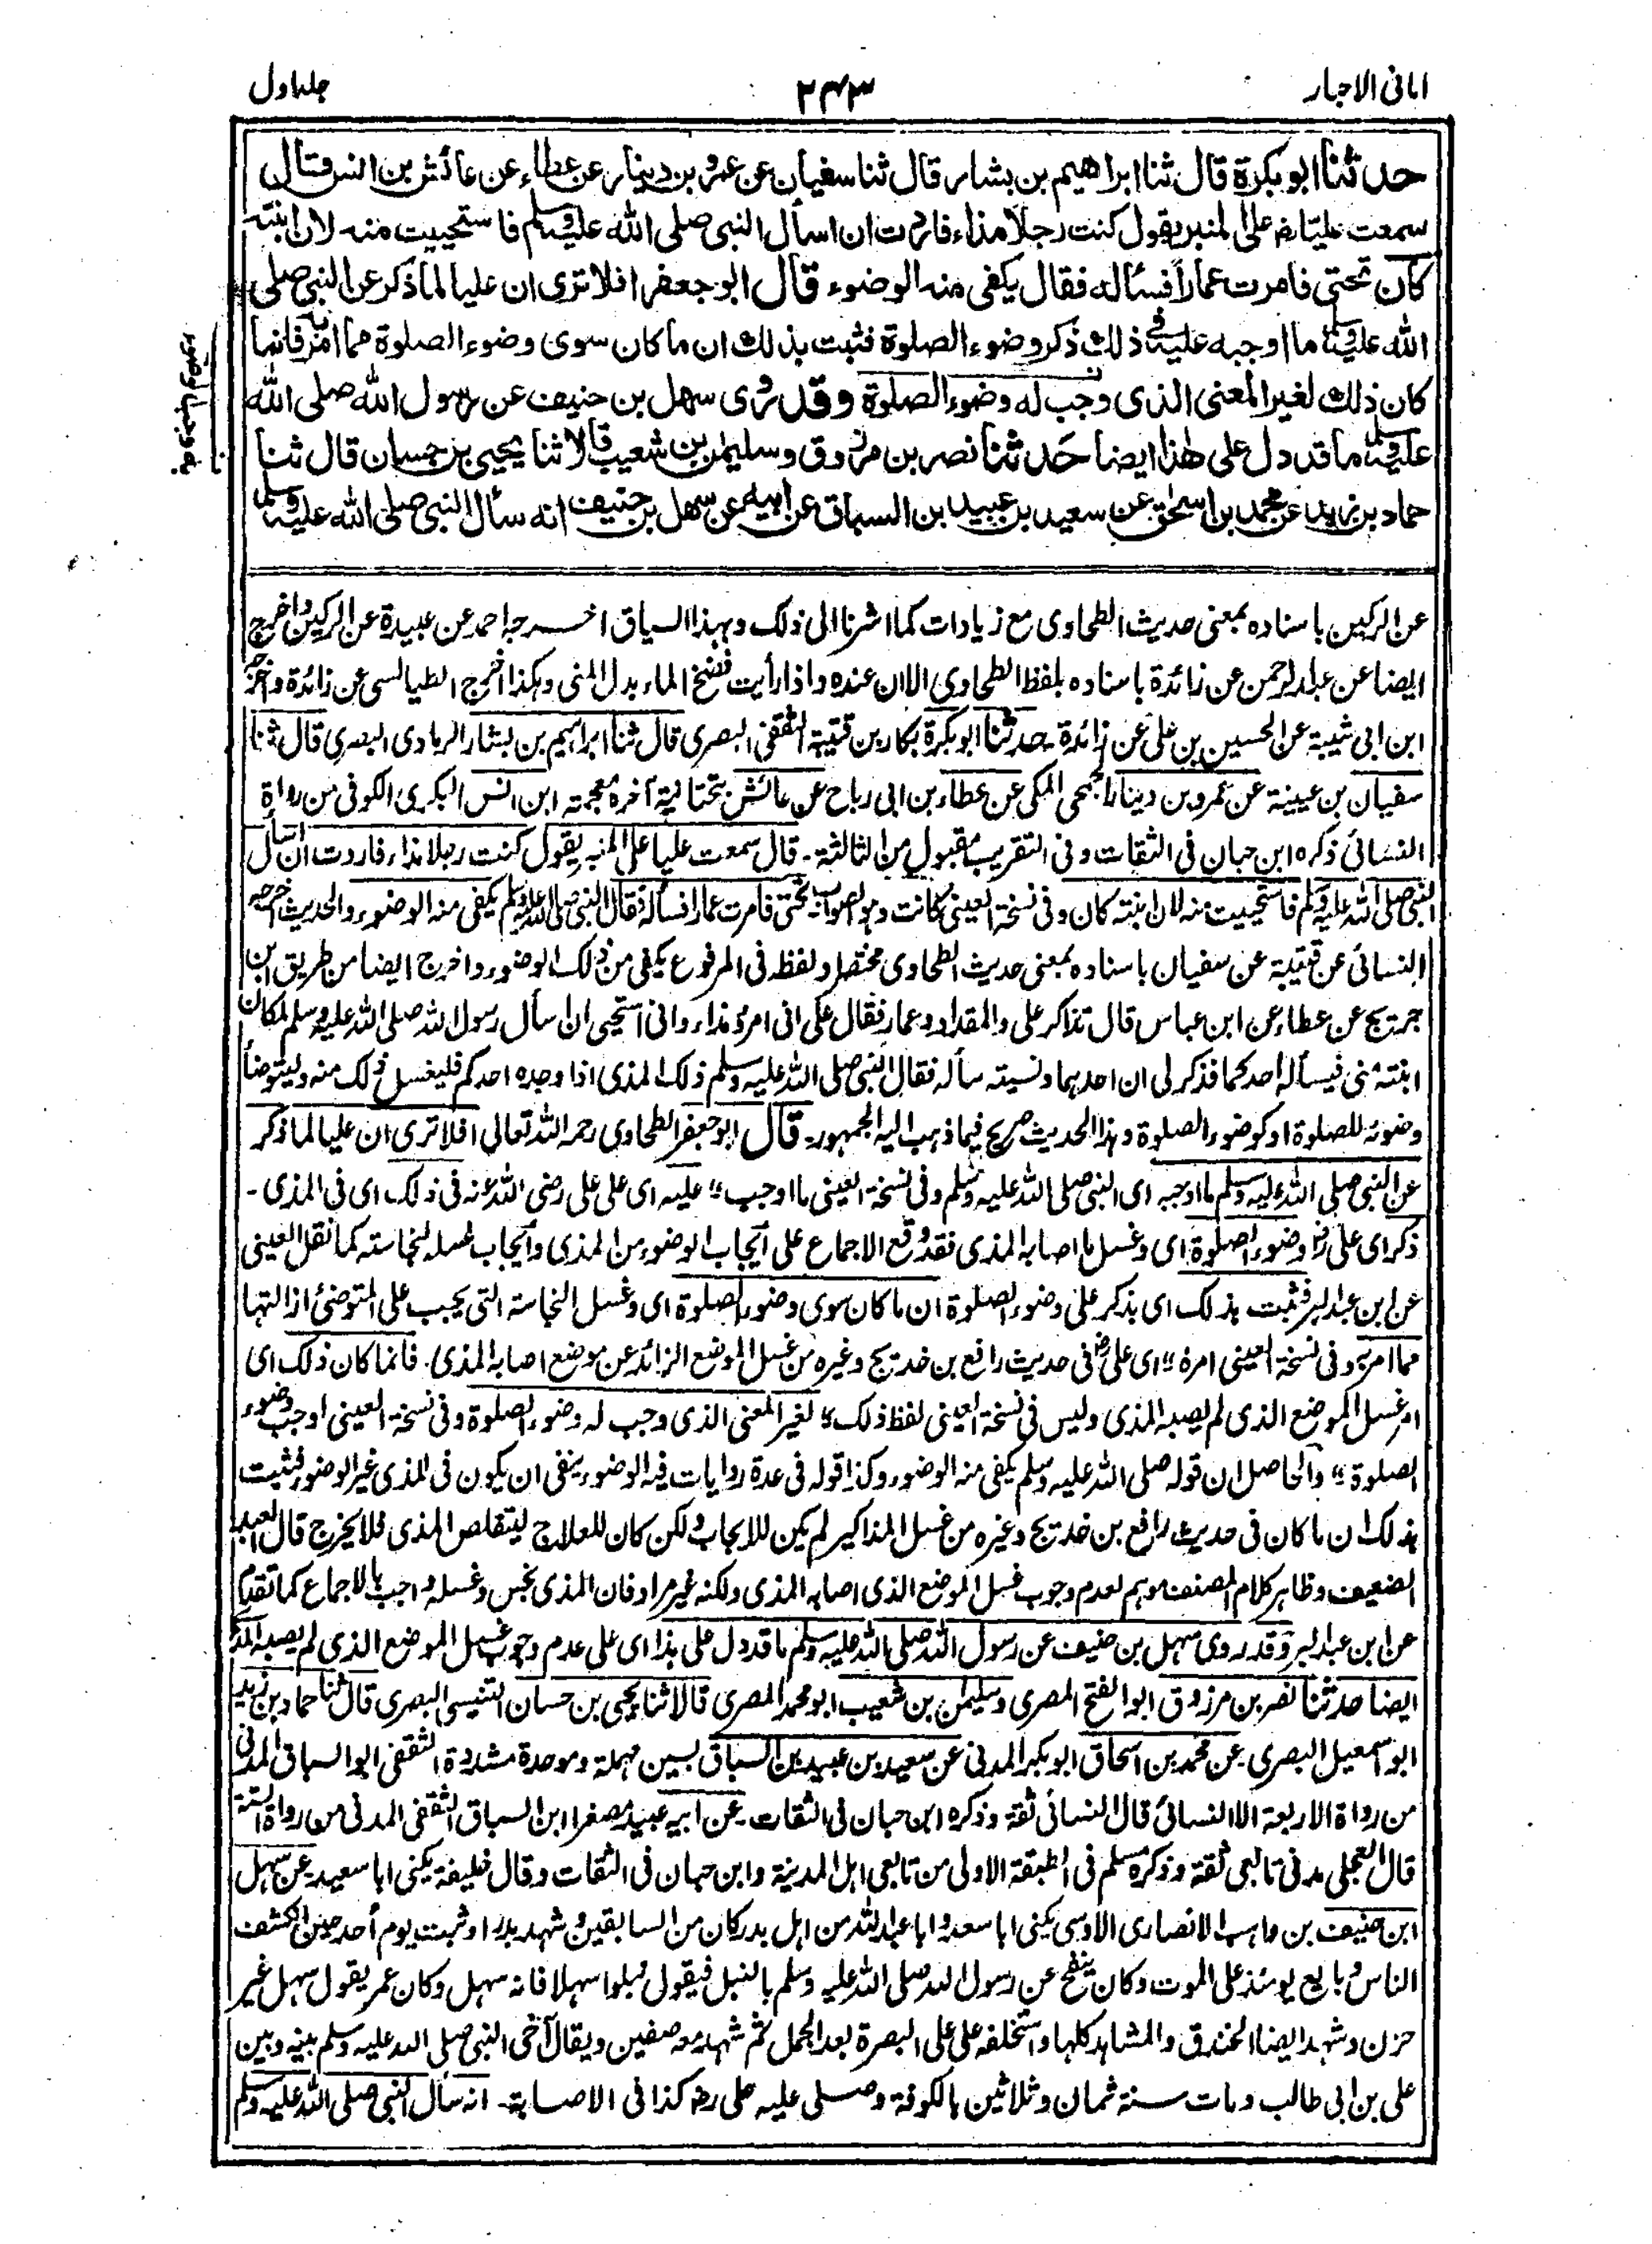 امانی الاحبار
۲۴۳
جلد اول
حدثنا ابو بكرة قال ثنا ابراهيم بن بشار قال ثنا سفيان عن عمرو بن دينار عن عطاء عن عائش بن انس قال
سمعت عليا رضـ على المنبر يقول كنت رجلا مذاء فاردت ان اسأل النبي صلى الله عليه وسلم فاستحييت منه لان ابنته
كان تحتي فامرت عمارا فسأله فقال يكفي منه الوضوء قال ابو جعفر افلا ترى ان عليا لما ذكر عن النبي صلى
الله عليه وسلم ما اوجبه عليه في ذلك ذكر وضوء الصلوة فثبت بذلك ان ما كان سوى وضوء الصلوة مما امر به فانما
كان ذلك لغير المعنى الذي وجب له وضوء الصلوة وقد روى سهل بن حنيف عن رسول الله صلى الله
عليه وسلم ما قد دل على هذا ايضا حدثنا نصر بن مرزوق وسليمن بن شعيب قالا ثنا يحيى بن حسان قال ثنا
حماد بن زيد عن محمد بن اسحق عن سعيد بن عبيد بن السباق عن ابيه عن سهل بن حنيف انه سأل النبي صلى الله عليه وسلم
عن الركين باسناده بمعنى حديث الطحاوي مع زيادات كما اشرنا الى ذلك وبهذا السياق اخرجه احمد عن عبيدة عن الركين واخرج
ايضا عن عبد الرحمن عن زائدة باسناده بلفظ الطحاوي الا ان عنده واذا رأيت فضخ الماء بدل المني وهكذا اخرج الطيالسي عن زائدة واخرجه
ابن ابي شيبة عن الحسين بن علي عن زائدة۔ حدثنا ابو بكرة بكار بن قتيبة الثقفي البصري قال ثنا ابراهيم بن بشار الرمادي البصري قال ثنا
سفيان بن عيينة عن عمرو بن دينار الجمحي المكي عن عطاء بن ابي رباح عن عائش بتحتانية آخره معجمة ابن انس البكري الكوفي من رواة
النسائي ذكره ابن حبان في الثقات وفي التقريب مقبول من الثالثة۔ قال سمعت عليا على المنبر يقول كنت رجلا مذاء فاردت ان اسأل
النبي صلى الله عليه وسلم فاستحييت منه لان ابنته كان وفي نسخة العيني كانت وهو الصواب تحتي فامرت عمارا فسأله فقال النبي صلى الله عليه وسلم يكفي منه الوضوء والحديث اخرجه
النسائي عن قتيبة عن سفيان باسناده بمعنى حديث الطحاوي مختصر ولفظه في المرفوع يكفي من ذلك الوضوء واخرج ايضا من طريق ابن
جريج عن عطاء عن ابن عباس قال تذاكر علي والمقداد وعمار فقال علي اني امرؤ مذاء واني استحيي ان اسأل رسول الله صلى الله عليه وسلم لمكان
ابنته مني فيسأله احدكما فذكر لي ان احدهما ونسيته سأله فقال النبي صلى الله عليه وسلم ذلك المذي اذا وجده احدكم فليغسل ذلك منه وليتوضأ
وضوئه للصلوة او كوضوء الصلوة وهذا الحديث صريح فيما ذهب اليه الجمهور۔ قال ابو جعفر الطحاوي رحمه الله تعالى افلا ترى ان عليا لما ذكر
عن النبي صلى الله عليه وسلم ما اوجبه اى النبي صلى الله عليه وسلم وفي نسخة العيني ما اوجب" عليه اى على علي رضي الله عنه في ذلك اى في المذي۔
ذكر اى علي رضـ وضوء الصلوة اى وغسل ما اصابه المذي فقد وقع الاجماع على ايجاب الوضوء من المذي وايجاب غسله لنجاسته كما نقل العيني
عن ابن عبد البر فثبت بذلك اى بذكر علي وضوء الصلوة ان ما كان سوى وضوء الصلوة اى وغسل النجاسة التي يجب على المتوضئ ازالتها
مما امر به وفي نسخة العيني امره" اى علي رضـ في حديث رافع بن خديج وغيره من غسل الموضع الزائد عن موضع اصابه المذي۔ فانما كان ذلك اى
امر غسل الموضع الذي لم يصبه المذي وليس في نسخة العيني لفظ ذلك" لغير المعنى الذي وجب له وضوء الصلوة وفي نسخة العيني اوجب وضوء
الصلوة" والحاصل ان قوله صلى الله عليه وسلم يكفي منه الوضوء وكذا قوله في عدة روايات فيه الوضوء ينفي ان يكون في المذي غير الوضوء فثبت
بذلك ان ما كان في حديث رافع بن خديج وغيره من غسل المذاكير لم يكن للايجاب ولكن كان للعلاج ليتقلص المذي فلا يخرج قال العبد
الضعيف وظاهر كلام المصنف موهم لعدم وجوب غسل الموضع الذي اصابه المذي ولكنه غير مراد فان المذي نجس وغسله واجب بالاجماع كما تقدم
عن ابن عبد البر وقد روى سهل بن حنيف عن رسول الله صلى الله عليه وسلم ما قد دل على هذا اى على عدم وجوب غسل الموضع الذي لم يصبه المذي
ايضا حدثنا نصر بن مرزوق ابو الفتح المصري وسليمن بن شعيب ابو محمد المصري قالا ثنا يحيى بن حسان التنيسي البصري قال ثنا حماد بن زيد
ابو اسمعيل البصري عن محمد بن اسحاق ابو بكر المدني عن سعيد بن عبيد بن السباق بسين مهملة وموحدة مشددة الثقفي ابو السباق المدني
من رواة الاربعة الا النسائي قال النسائي ثقة وذكره ابن حبان في الثقات۔ عن ابيه عبيد مصغرا ابن السباق الثقفي المدني من رواة الستة
قال العجلي مدني تابعي ثقة وذكره مسلم في الطبقة الاولى من تابعي اهل المدينة وابن حبان في الثقات وقال خليفة يكنى ابا سعيد۔ عن سهل
ابن حنيف بن واهب الانصاري الاوسي يكنى ابا سعد وابا عبد الله من اهل بدر كان من السابقين وشهد بدرا وثبت يوم أحد حين انكشف
الناس وبايع يومئذ على الموت وكان ينفح عن رسول الله صلى الله عليه وسلم بالنبل فيقول نبلوا سهلا فانه سهل وكان عمر يقول سهل غير
حزن وشهد ايضا الخندق والمشاهد كلها واستخلفه علي على البصرة بعد الجمل ثم شهد معه صفين ويقال آخى النبي صلى الله عليه وسلم بينه وبين
علي بن ابي طالب ومات سنة ثمان وثلاثين بالكوفة وصلى عليه علي رضـ كذا في الاصابة۔ انه سأل النبي صلى الله عليه وسلم